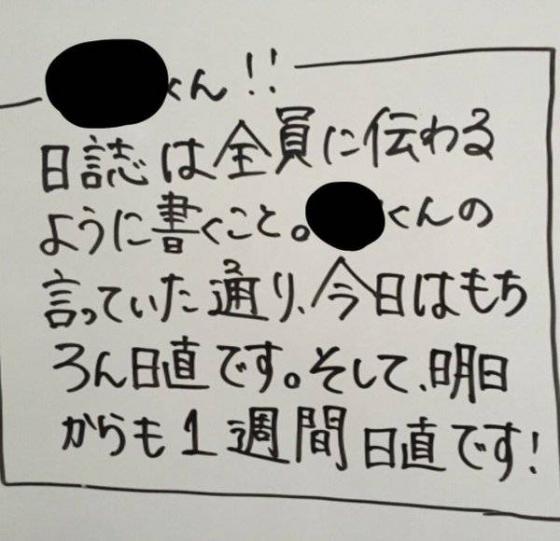 くん!!
日誌は全員に伝わる
ように書くこと。くんの
言っていた通り、今日はもち
ろん日直です。そして、明日
からも1週間日直です!